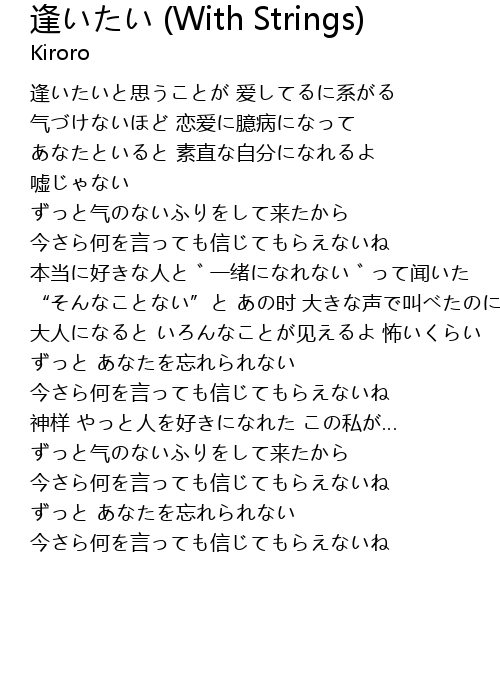 逢いたい (With Strings)
Kiroro
逢いたいと思うことが 爱してるに系がる
气づけないほど 恋爱に臆病になって
あなたといると 素直な自分になれるよ
嘘じゃない
ずっと气のないふりをして来たから
今さら何を言っても信じてもらえないね
本当に好きな人と゛一绪になれない゛って闻いた
“そんなことない”と あの时 大きな声で叫べたのに
大人になると いろんなことが见えるよ 怖いくらい
ずっと あなたを忘れられない
今さら何を言っても信じてもらえないね
神样 やっと人を好きになれた この私が...
ずっと气のないふりをして来たから
今さら何を言っても信じてもらえないね
ずっと あなたを忘れられない
今さら何を言っても信じてもらえないね